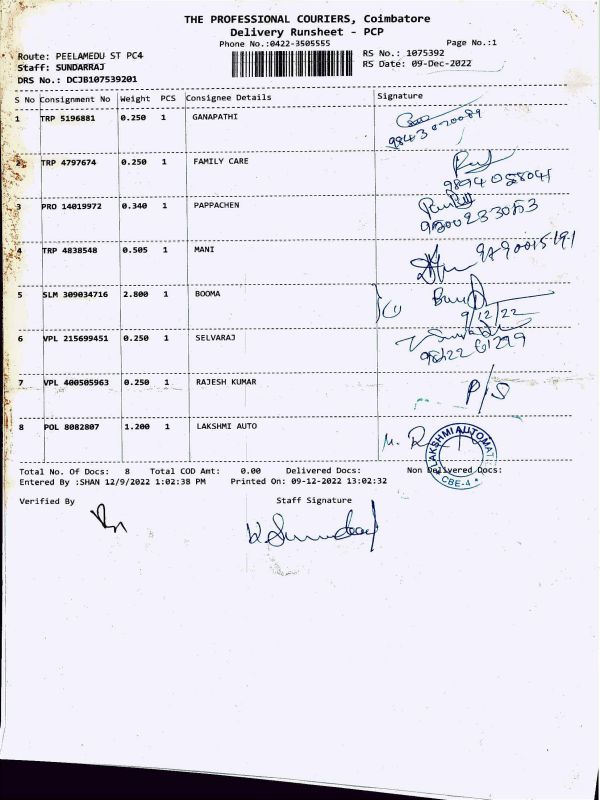 THE PROFESSIONAL COURIERS, Coimbatore
Delivery Runsheet - PCP
Phone No.:0422-3505555 Page No.:1
Route: PEELAMEDU ST PC4 RS No.: 1075392
Staff: SUNDARRAJ RS Date: 09-Dec-2022
DRS No.: DCJB107539201
S No Consignment No Weight PCS Consignee Details Signature
1 TRP 5196881 0.250 1 GANAPATHI
TRP 4797674 0.250 1 FAMILY CARE
3 PRO 14019972 0.340 1 PAPPACHEN
4 TRP 4838548 0.505 1 MANI
5 SLM 309034716 2.800 1 BOOMA
9/12/22
6 VPL 215699451 0.250 1 SELVARAJ
7 VPL 400505963 0.250 1 RAJESH KUMAR P/S
8 POL 8082807 1.200 1 LAKSHMI AUTO
LAKSHMI AUTOMAT
CBE-4
Total No. Of Docs: 8 Total COD Amt: 0.00 Delivered Docs: Non Delivered Docs:
Entered By :SHAN 12/9/2022 1:02:38 PM Printed On: 09-12-2022 13:02:32
Verified By Staff Signature